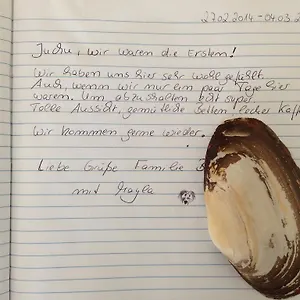 27.02.2014 - 04.03.2
Juchu, wir waren die Ersten!
Wir haben uns hier sehr wohl gefühlt.
Auch, wenn wir nur ein paar Tage hier
waren. Um abzuschalten ist super
Tolle Aussicht, gemütliche Betten, lecker Kaff
Wir kommen gerne wieder.
Liebe Grüße Familie
mit